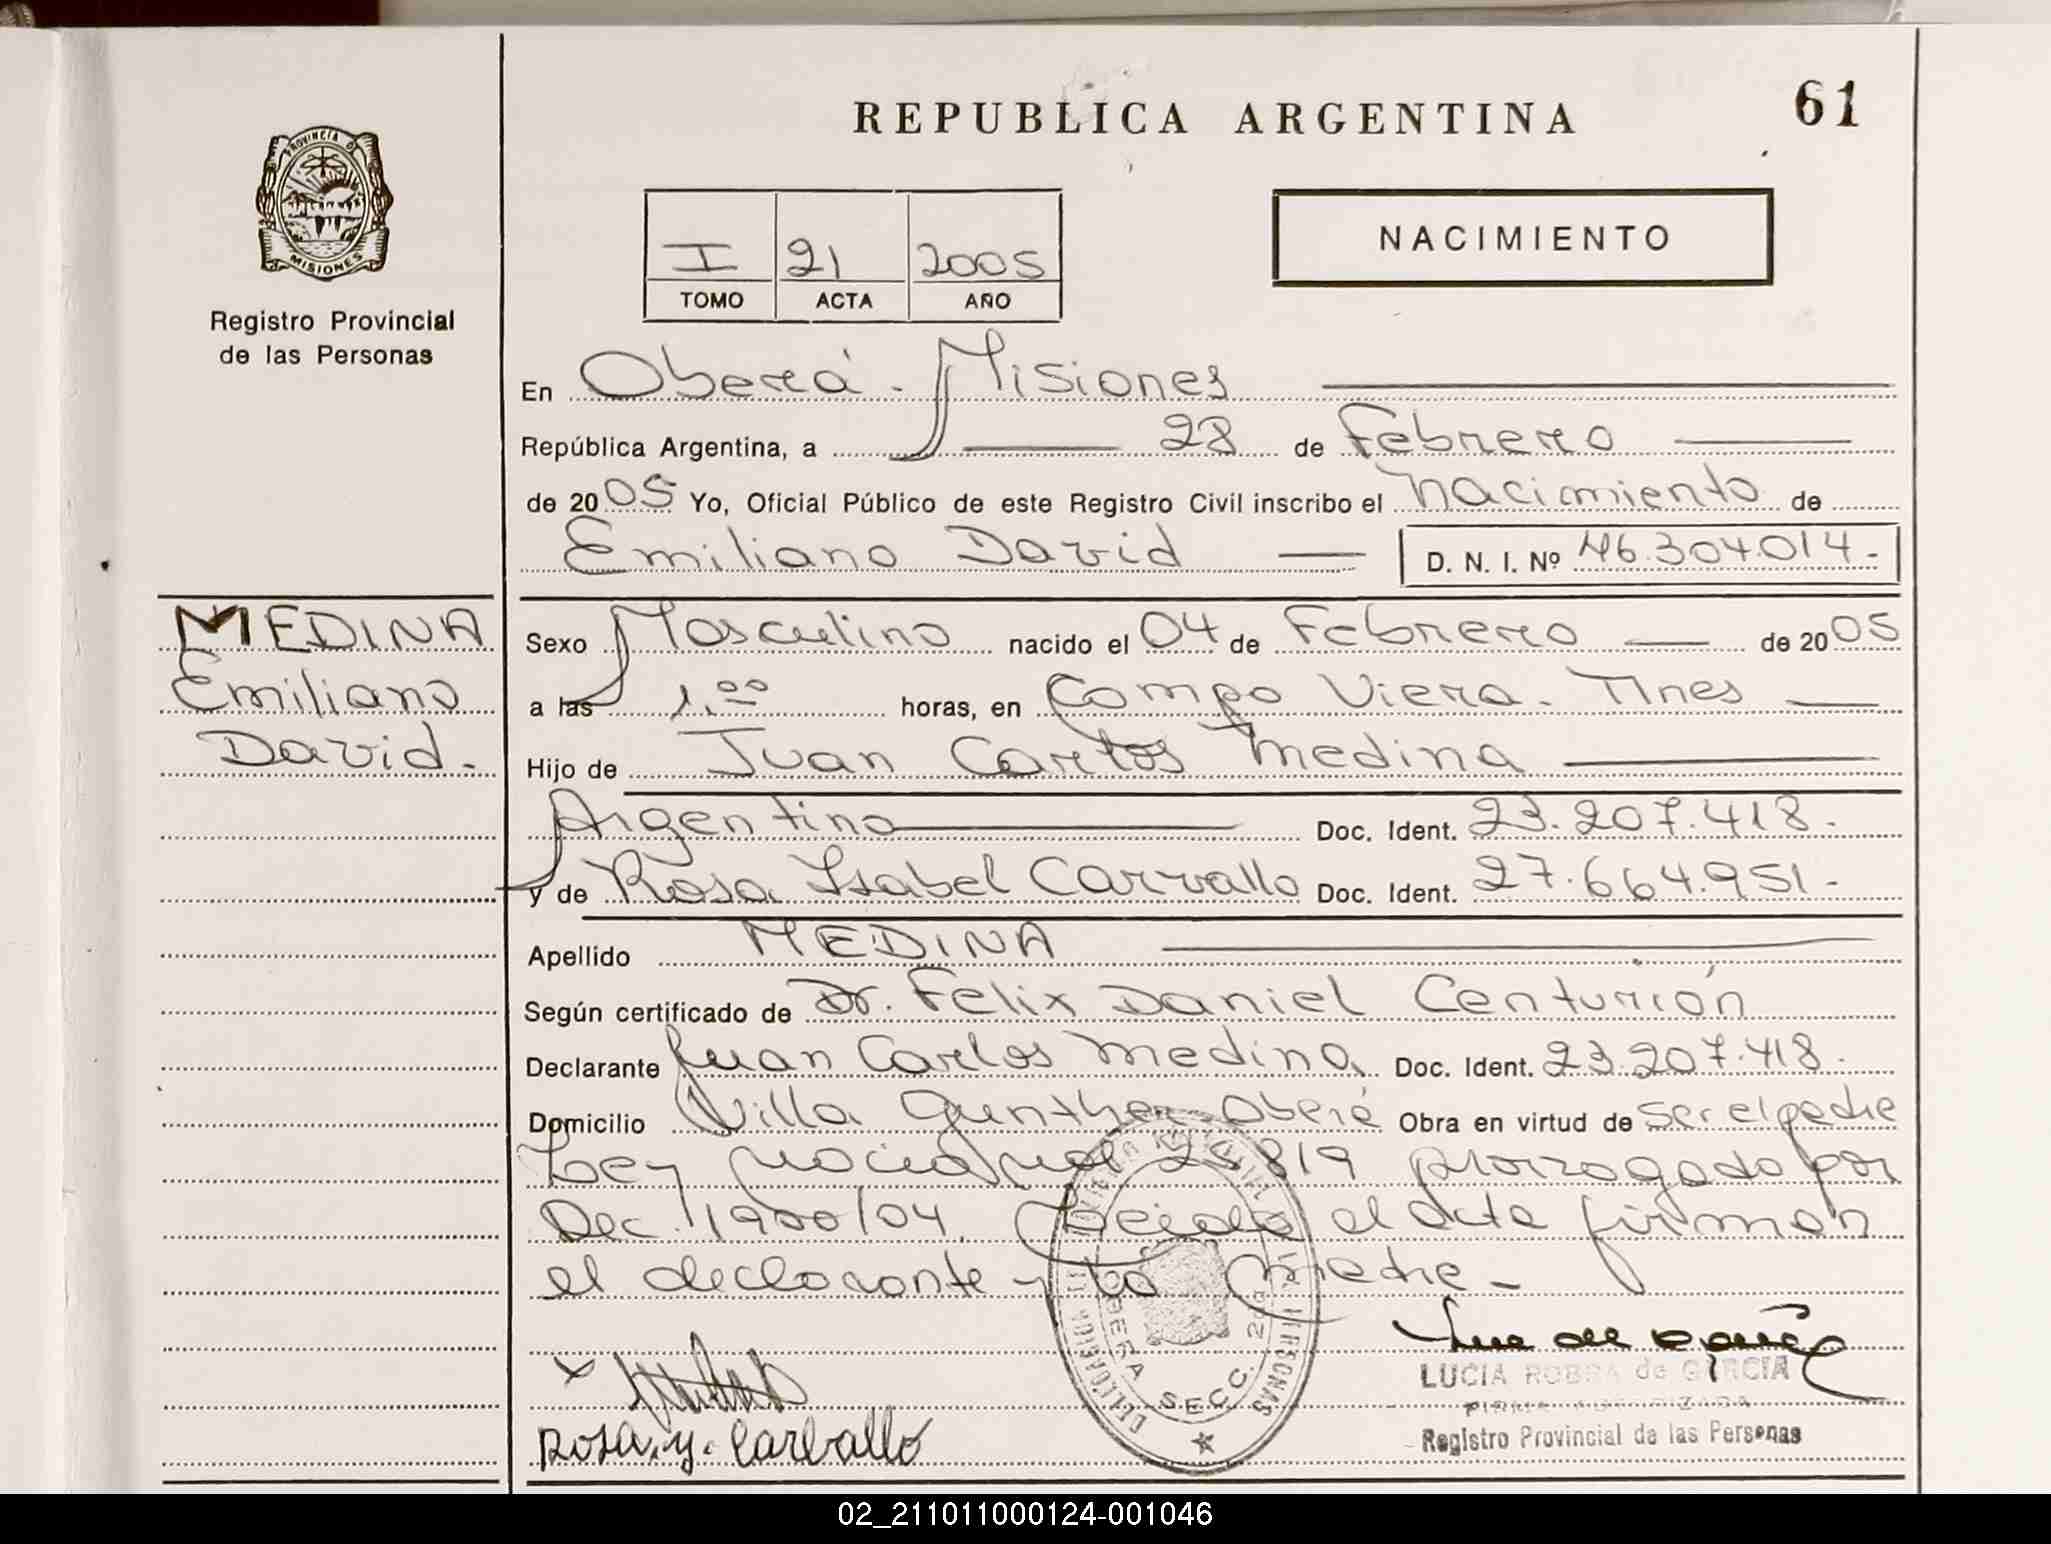 REPUBLICA ARGENTINA
61
PROVINCIA DE
MISIONES
Registro Provincial
de las Personas
I 21 2005
TOMO ACTA AÑO
NACIMIENTO
En Oberá - Misiones
República Argentina, a 28 de Febrero
de 2005 Yo, Oficial Público de este Registro Civil inscribo el nacimiento de
Emiliano David D. N. I. Nº 46.304.014.-
MEDINA
Emiliano
David.
Sexo Masculino nacido el 04 de Febrero de 2005
a las 1.00 horas, en Campo Viera. Mnes
Hijo de Juan Carlos Medina
Argentino Doc. Ident. 23.207.418.
y de Rosa Isabel Carvallo Doc. Ident. 27.664.951-
Apellido MEDINA
Según certificado de Dr. Felix Daniel Centurión
Declarante Juan Carlos Medina Doc. Ident. 23.207.418.
Domicilio Villa Gunther Oberá Obra en virtud de ser el padre
Ley nacional 25819 prorrogado por
Dec. 1900/04. el acta firman
el declarante y la madre-
Rosa. y. Carballo
OBERA SECC. 2da
LUCIA ROBRA de GARCIA
FIRMA AUTORIZADA
Registro Provincial de las Personas
02_211011000124-001046